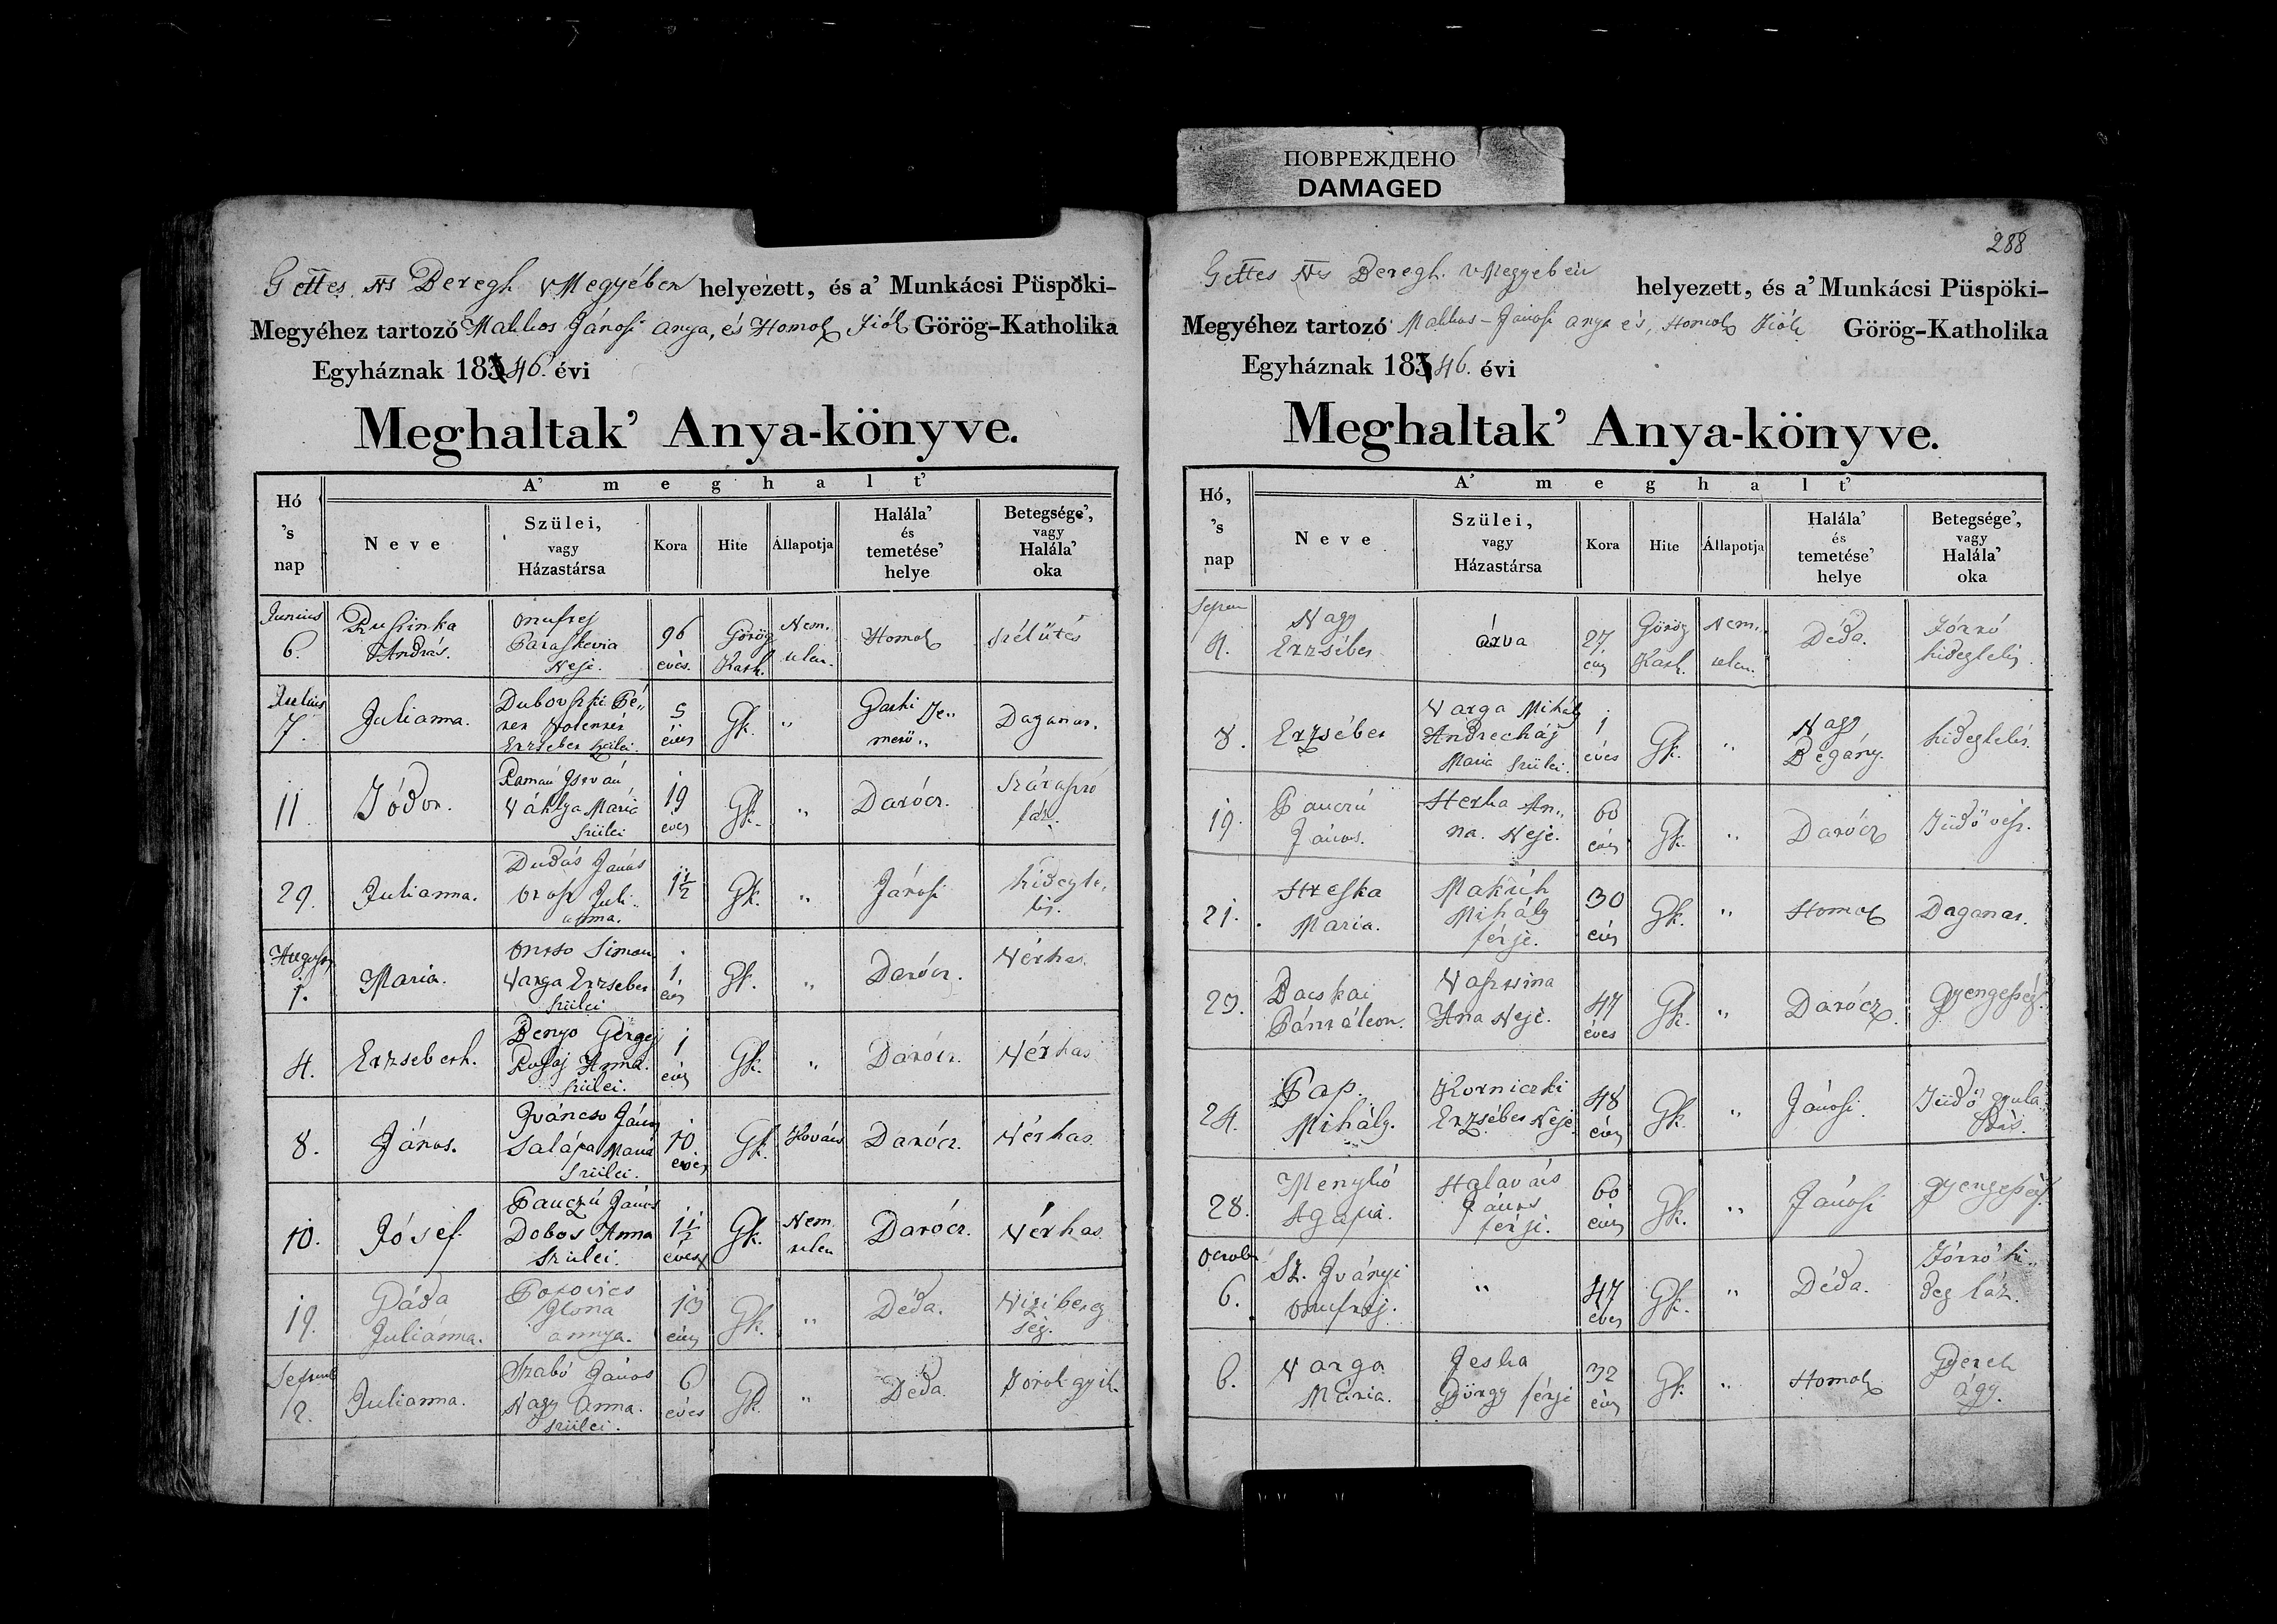 ПОВРЕЖДЕНО
DAMAGED
Gettes Ns Beregh vMegyében helyezett, és a’ Munkácsi Püspöki-
Megyéhez tartozó Makkos Jánosi anya, és Homok fiók Görög-Katholika
Egyháznak 18346. évi
Meghaltak’ Anya-könyve.
A’ meghalt’
Hó ’s nap
Neve
Szülei, vagy Házastársa
Kora
Hite
Állapotja
Halála’ és temetése’ helye
Betegsége’, vagy Halála’ oka
Junius 6. Rusinka András. Onufrej Paraskevia Neje. 96 éves. Görög Kath. Nem. telen. Homok szélütés
Julius 7. Julianna. Dubovszki Pé„ ter Erzsebet szülei. 5 éves Gk. „ Te„ mető„ Daganat.
11. Tódor. Román István Maria szülei 19 éves Gk. „ Darócz.
29. Julianna. Dudás János Orosz Juli- anna. 1½ Gk. „ Jánosi hidegle, lés.
Augusz 1. Maria. Simon Varga Erzsebet szülei 1. éves Gk. „ Darócz. Vérhas.
4. Erzsebeth. Benyo Gergej Anna. szülei. 1 éves Gk. „ Darócz. Vérhas
8. János. Iváncso János Salapa Maria szülei. 10 éves Gk. Kovács Darócz. Vérhas
10. Jósef. Pauczú János Dobos Anna szülei. 1½ éves Gk. Nem. telen Darócz. Vérhas.
19. Gáda Juliánna. Popovics Ilona annya. 13 éves Gk. „ Déda. Vizibeteg ség.
Septemb 2. Julianna. Szabó János Nagy Anna. szülei. 6 éves Gk. „ Déda. Torokgyik.
288
Gettes Ns Beregh. vMegyében helyezett, és a’ Munkácsi Püspöki-
Megyéhez tartozó Makkos-Jánosi anya és, Homok fiók Görög-Katholika
Egyháznak 18346. évi
Meghaltak’ Anya-könyve.
A’ meghalt’
Hó, ’s nap
Neve
Szülei, vagy Házastársa
Kora
Hite
Állapotja
Halála’ és temetése’ helye
Betegsége’, vagy Halála’ oka
Septem 4. Nagy Erzsébet árva 27 éves Görög Kath. Nem„ telen. Déda. Forró hideglelés.
8. Erzsébet Varga Mihály Andrecháj Maria szülei. 1 éves Gk. „ Nagy Bégány. hideglelés.
19. Pauczú János. Sterha An„ na. Neje. 60 éves Gk. „ Darócz Tüdővész.
21. Maria. Makuch Mihály férje. 30 éves Gk. „ Homok Daganat.
23. Bacskai Pántáleon. Ana Neje. 47 éves Gk. „ Darócz. Gyengeség.
24. Pap. Mihály. Korniczki Erzsébet Neje 48 éves Gk. „ Jánosi. Tüdő gyula dás.
28. Agapia. Halavács János férje. 60 éves Gk. „ Jánosi Gyengeség.
Octob 6. Sz. Iványi Onufrej. „ 47 éves Gk. „ Déda. Forró hi„ deg láz.
6. Varga Mária. Jeska György férje 32 éves Gk. „ Homok Gyerek ágy.